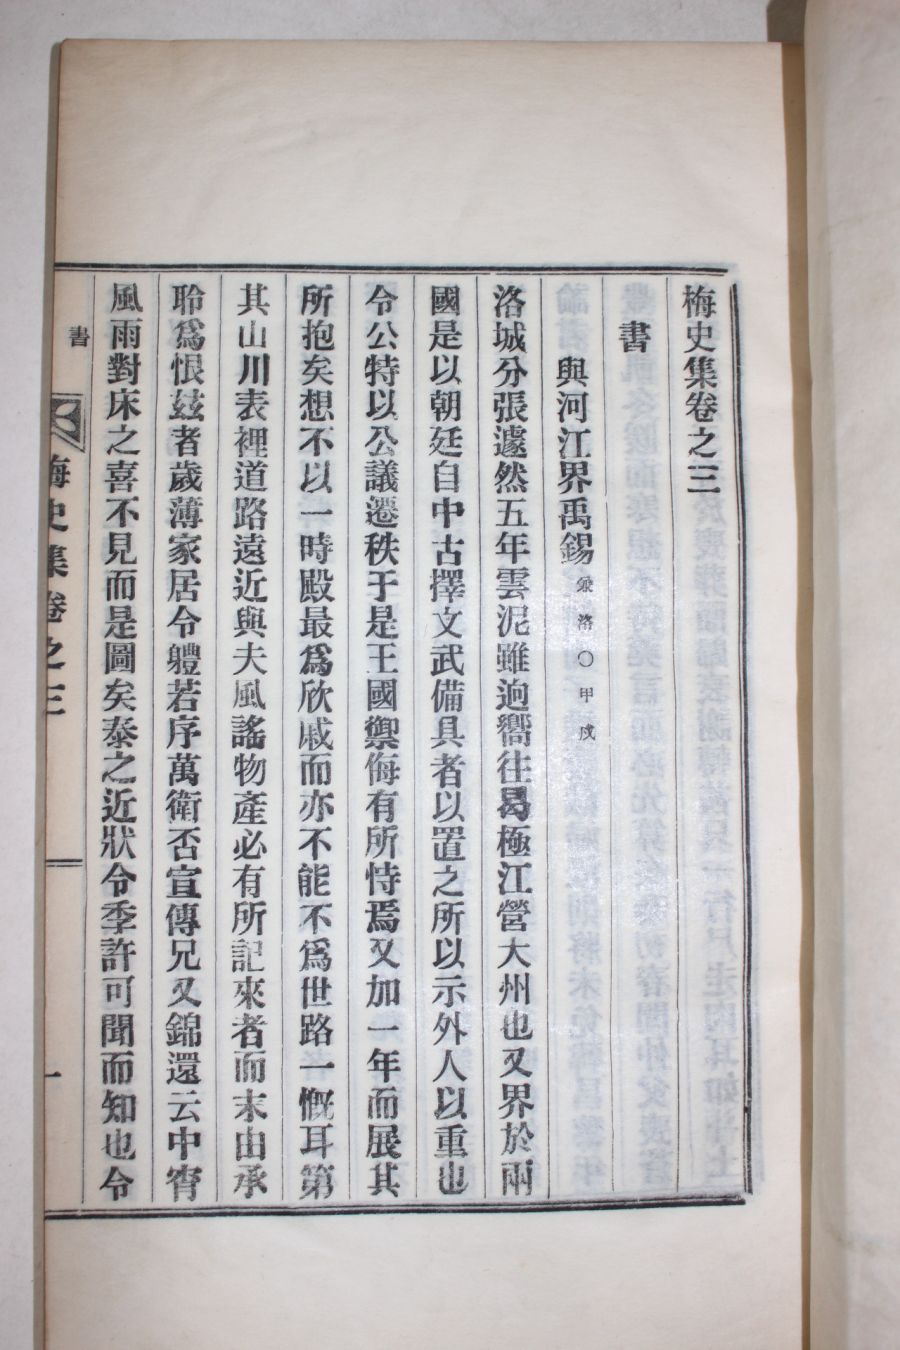 梅史集卷之三
書
與河江界禹錫 兼洛○甲戌
洛城分張遽然五年雲泥雖逈嚮往曷極江營大州也又界於兩
國是以朝廷自中古擇文武備具者以置之所以示外人以重也
令公特以公議遷秩于是王國禦侮有所恃焉又加一年而展其
所抱矣想不以一時殿最爲欣戚而亦不能不爲世路一慨耳第
其山川表裡道路遠近與夫風謠物產必有所記來者而末由承
聆爲恨玆者歲薄家居令軆若序萬衛否宣傳兄又錦還云中宵
風雨對床之喜不見而是圖矣泰之近狀令季許可聞而知也令
書
梅史集卷之三
一